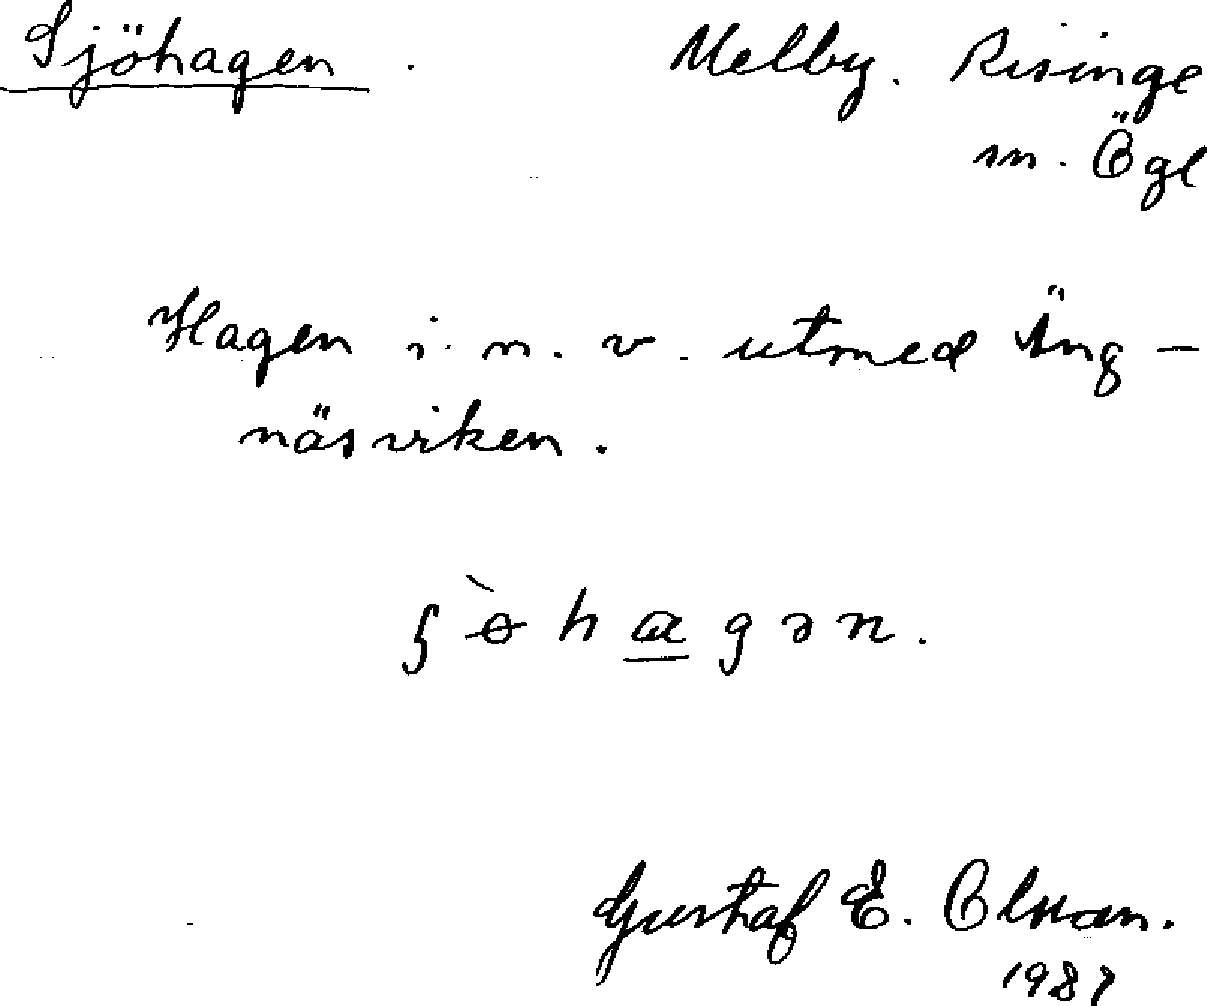 Sjöhagen. Melby. Risinge
sn. Ögl
Hagen i n. v. utmed Äng-
näsviken.
ʃɵ̀hagən.
Gustaf E. Olsson.
1987